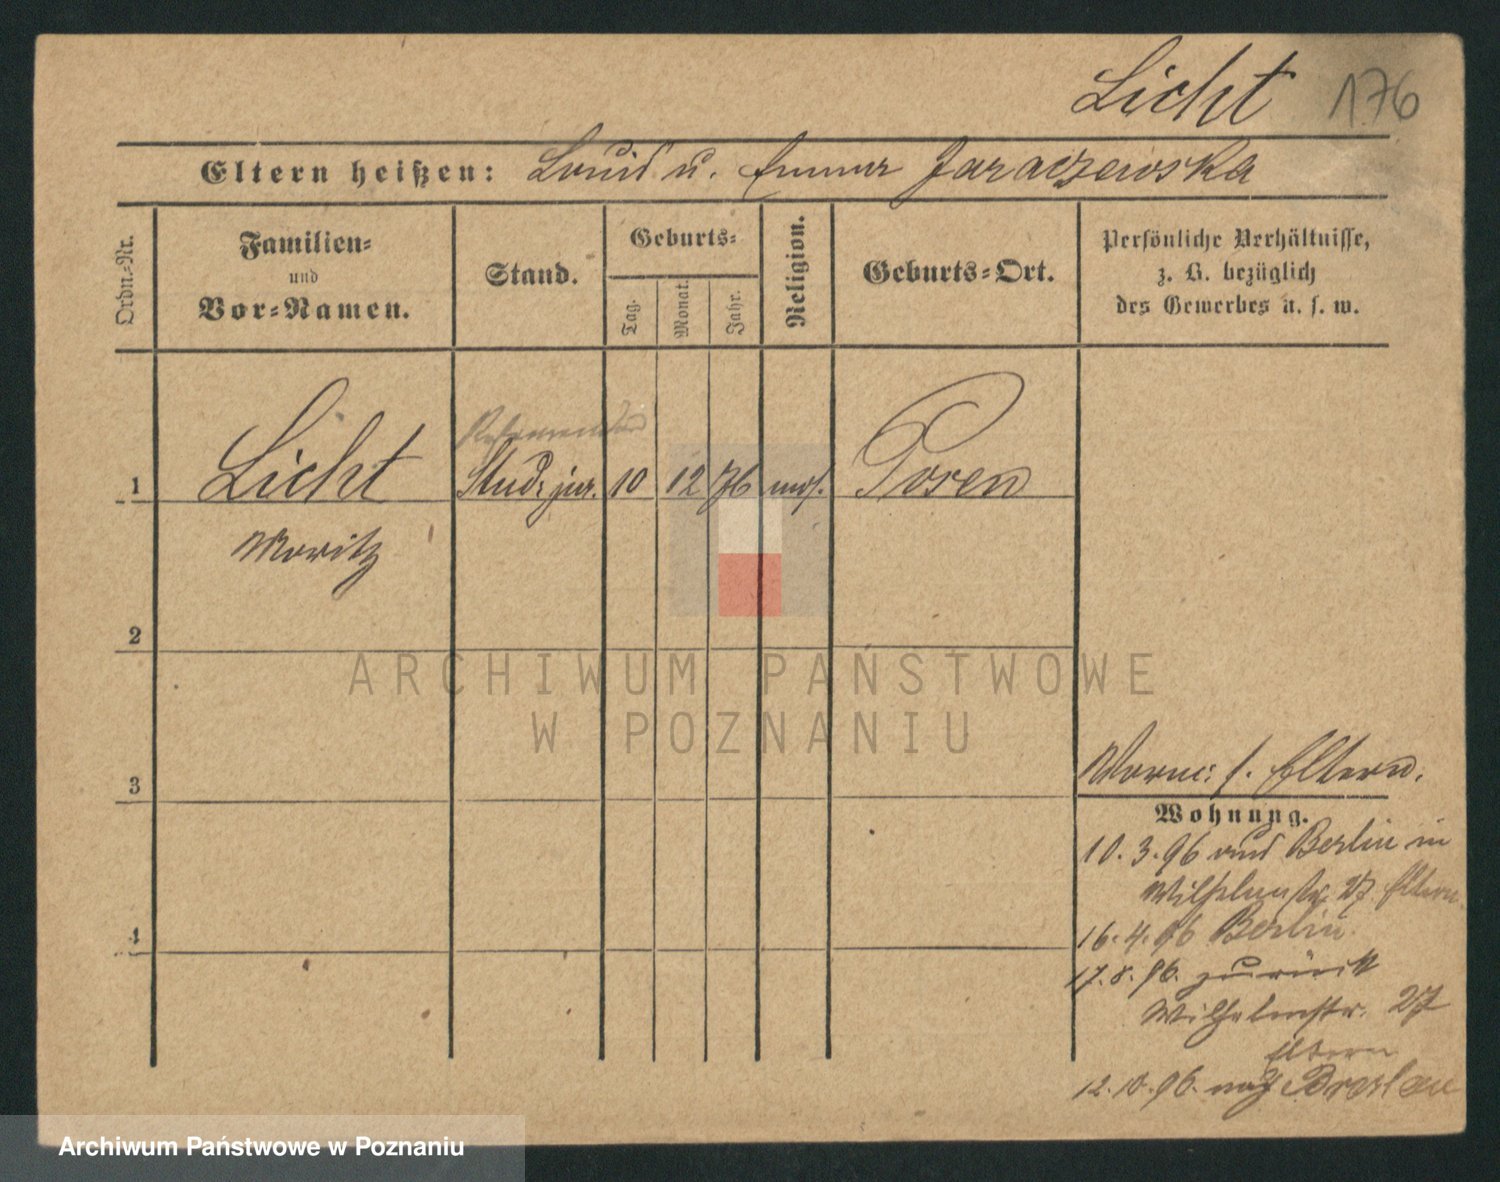 Licht 176
Eltern heißen: Louis u. Emma Jaraczewska
Ordn.-Nr.
Familien-
und
Vor-Namen.
Stand.
Geburts-
Tag.
Monat.
Jahr.
Religion.
Geburts-Ort.
Persönliche Verhältnisse,
z. B. bezüglich
des Gewerbes u. s. w.
Referendar
1 Licht Stud. jur. 10 12 76 mos. Posen
Moritz
2
ARCHIWUM PAŃSTWOWE
W POZNANIU
3
s. Eltern.
Wohnung.
10.3.96 aus Berlin in
Wilhelmstr. 27 Eltern
16.4.96 Berlin.
17.8.96. zurück
Wilhelmstr. 27
Eltern
12.10.96. nach Breslau
4
Archiwum Państwowe w Poznaniu